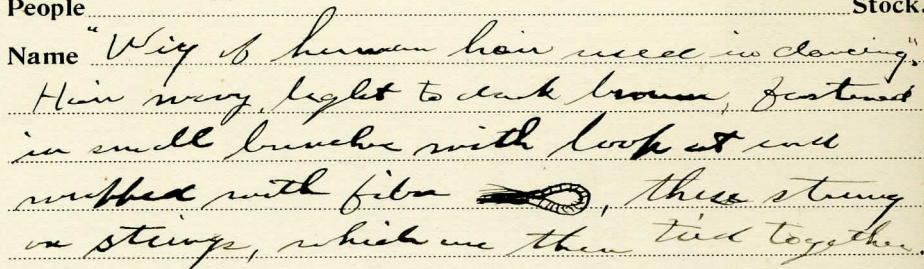 People Stock.
Name "Wig of human hair used in dancing".
Hair wavy, light to dark brown, fastened
in small bunches with loop at end
wrapped with fibre, these strung
on strings, which are then tied together